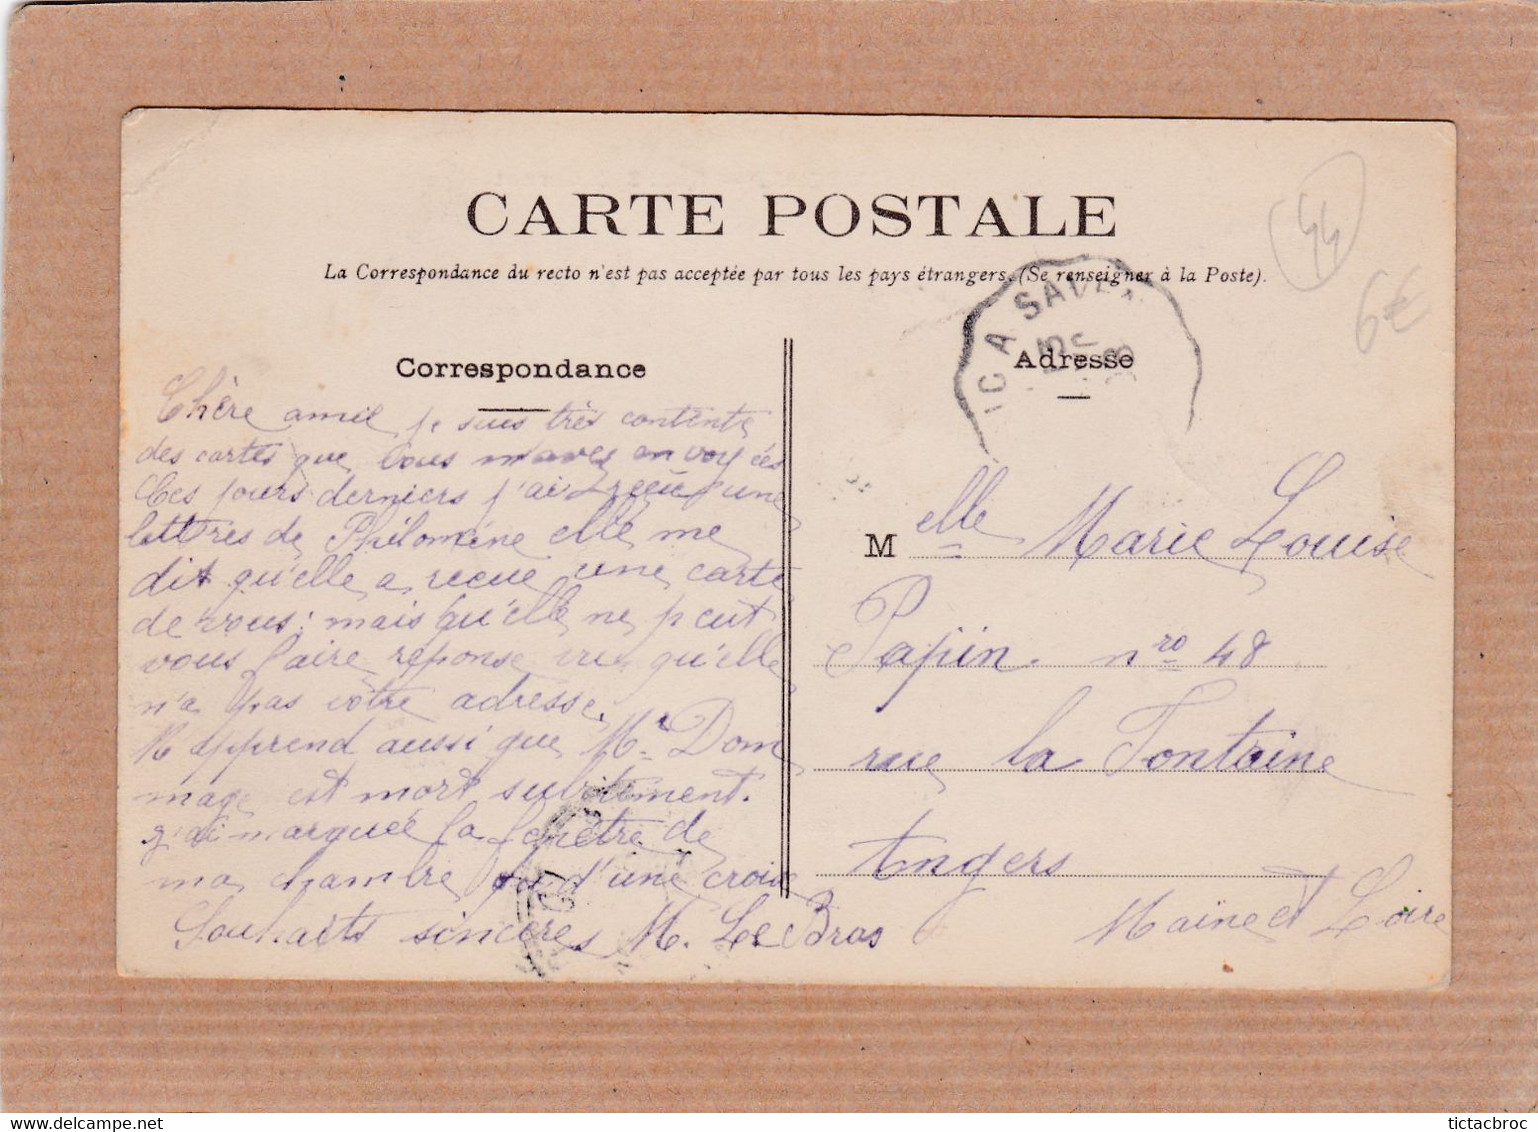 CARTE POSTALE
La Correspondance du recto n'est pas acceptée par tous les pays étrangers. (Se renseigner à la Poste).
44
6€
Correspondance
Chère amie je suis très contente
des cartes que vous m'avez envoyées
Ces jours derniers j'ai reçue une
lettres de Philomène elle me
dit qu'elle a reçue une carte
de vous; mais qu'elle ne peut
vous faire reponse vu qu'elle
n'a pas votre adresse.
M'apprend aussi que Mr Dom
mage est mort subitement.
J'ai marquée la fenêtre de
ma chambre d'une croix
Souhaits sincères M. Le Bras
IC A SAVEN
15
Adresse
M elle Marie Louise
Papin. nro 48
rue la Fontaine
Angers
Maine et Loire
delcampe.net
tictacbroc